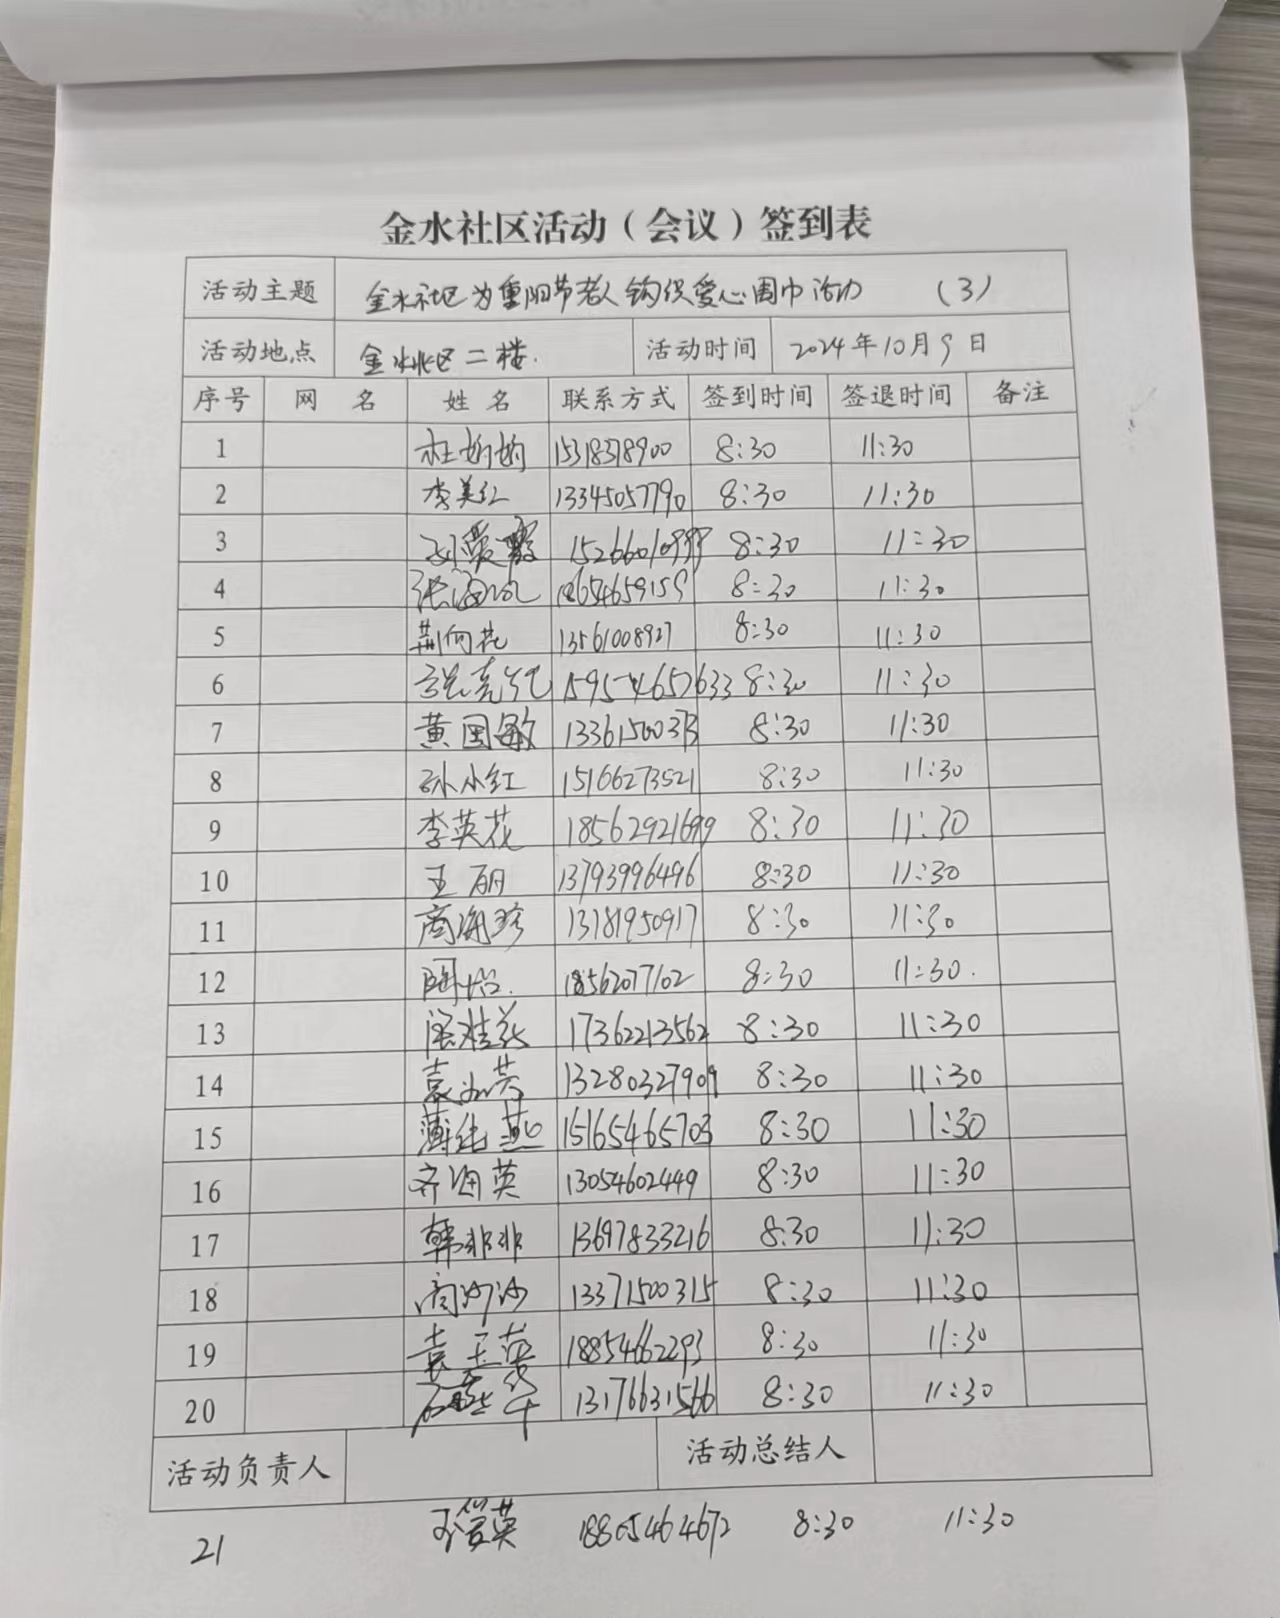 金水社区活动（会议）签到表
活动主题 金水社区为重阳节老人钩织爱心围巾活动 （3）
活动地点 金水社区二楼. 活动时间 2024年10月9日
序号 网 名 姓 名 联系方式 签到时间 签退时间 备注
1 15318378900 8:30 11:30
2 李美红 13345057790 8:30 11:30
3 8:30 11:30
4 18654659159 8:30 11:30
5 荆向花 13561008927 8:30 11:30
6 15954657633 8:30 11:30
7 黄国敏 13361500373 8:30 11:30
8 孙小红 15166273521 8:30 11:30
9 李英花 18562921699 8:30 11:30
10 王丽 13793996496 8:30 11:30
11 商海珍 13181950917 8:30 11:30
12 18562077102 8:30 11:30.
13 17362213562 8:30 11:30
14 13280327909 8:30 11:30
15 15165465703 8:30 11:30
16 齐海英 13054602449 8:30 11:30
17 韩非非 13697833216 8:30 11:30
18 商沙沙 13371500315 8:30 11:30
19 袁玉萍 18854662293 8:30 11:30
20 13176631566 8:30 11:30
活动负责人 活动总结人
21 18805464672 8:30 11:30